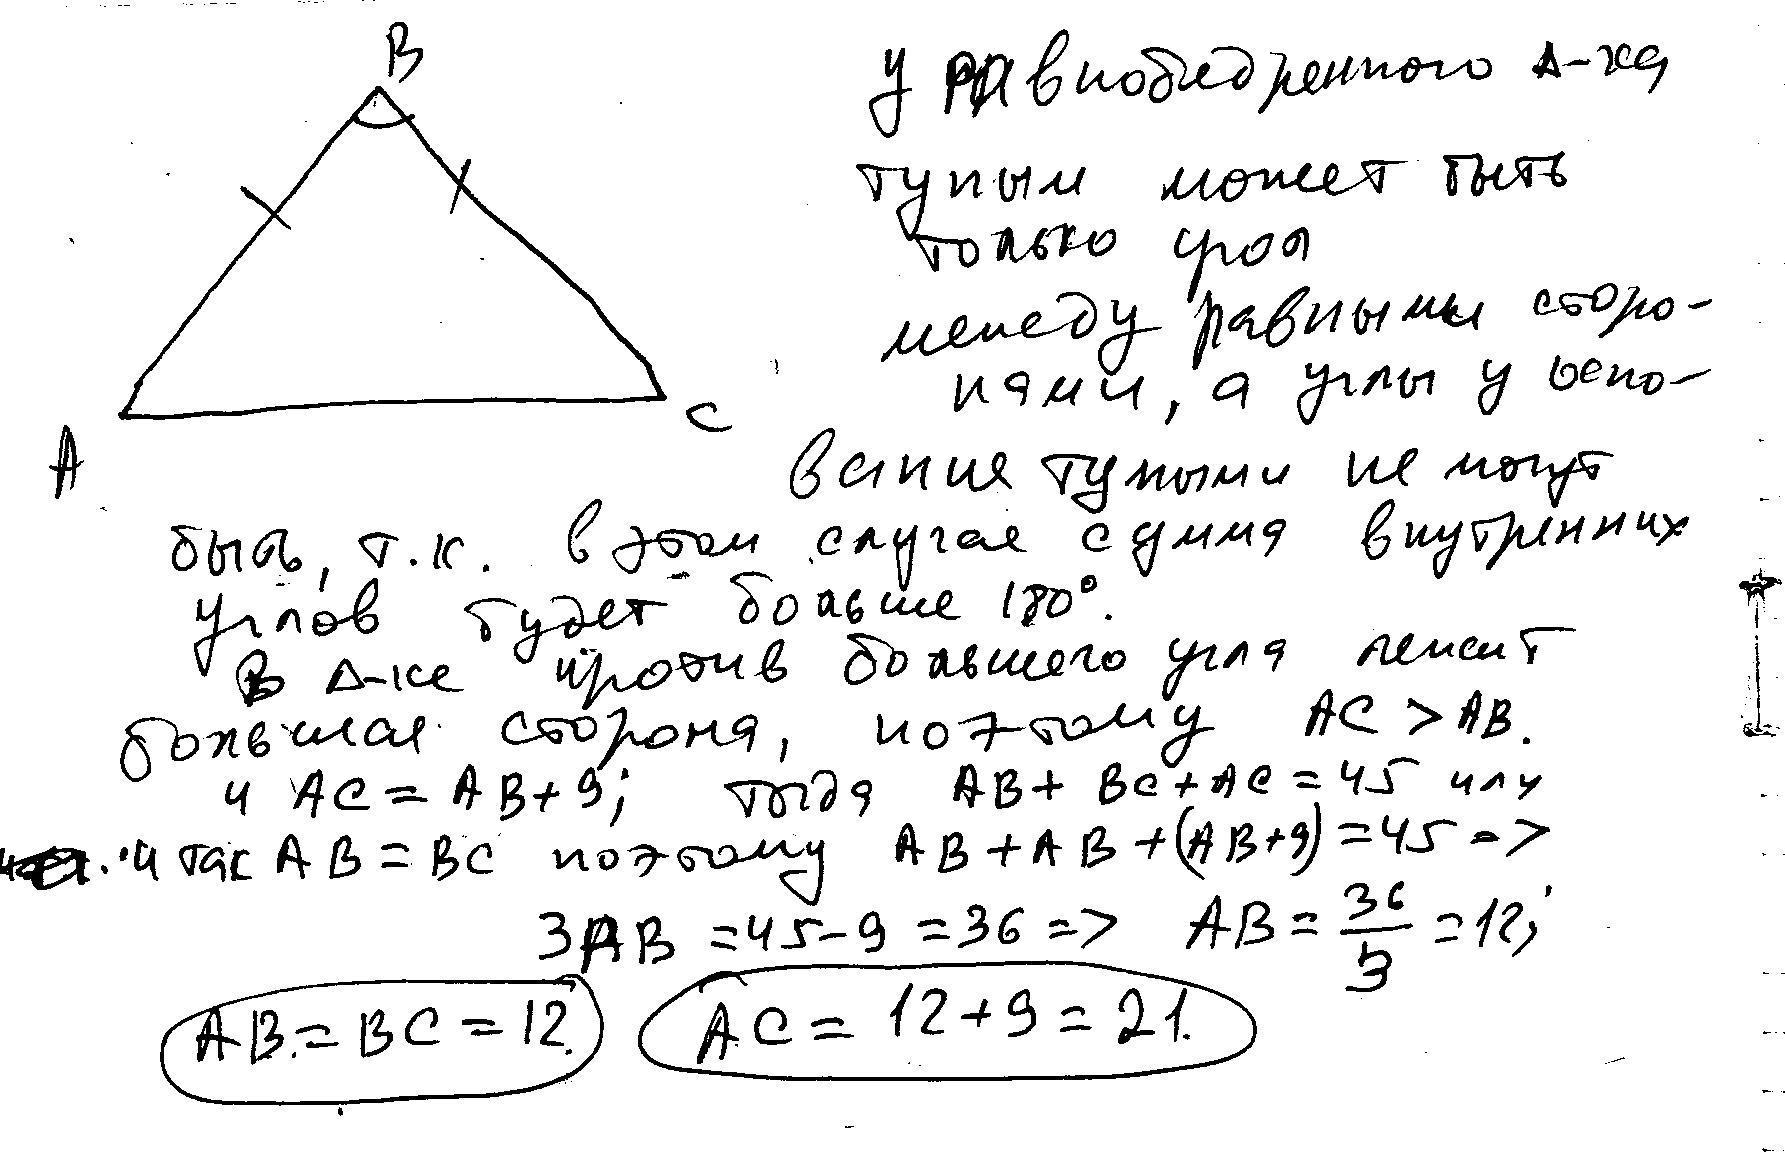 B
A
C
У равнобедренного Δ-ка
тупым может быть
только угол
между равными сторо-
нами, а углы у осно-
вания тупыми не могут
быть, т.к. в этом случае сумма внутренних
углов будет больше 180°.
В Δ-ке против большего угла лежит
большая сторона, поэтому AC > AB.
и AC = AB + 9; тогда AB + BC + AC = 45 или
и так AB = BC поэтому AB + AB + (AB + 9) = 45 =>
3AB = 45 - 9 = 36 => AB = 36/3 = 12;
AB = BC = 12. AC = 12 + 9 = 21.